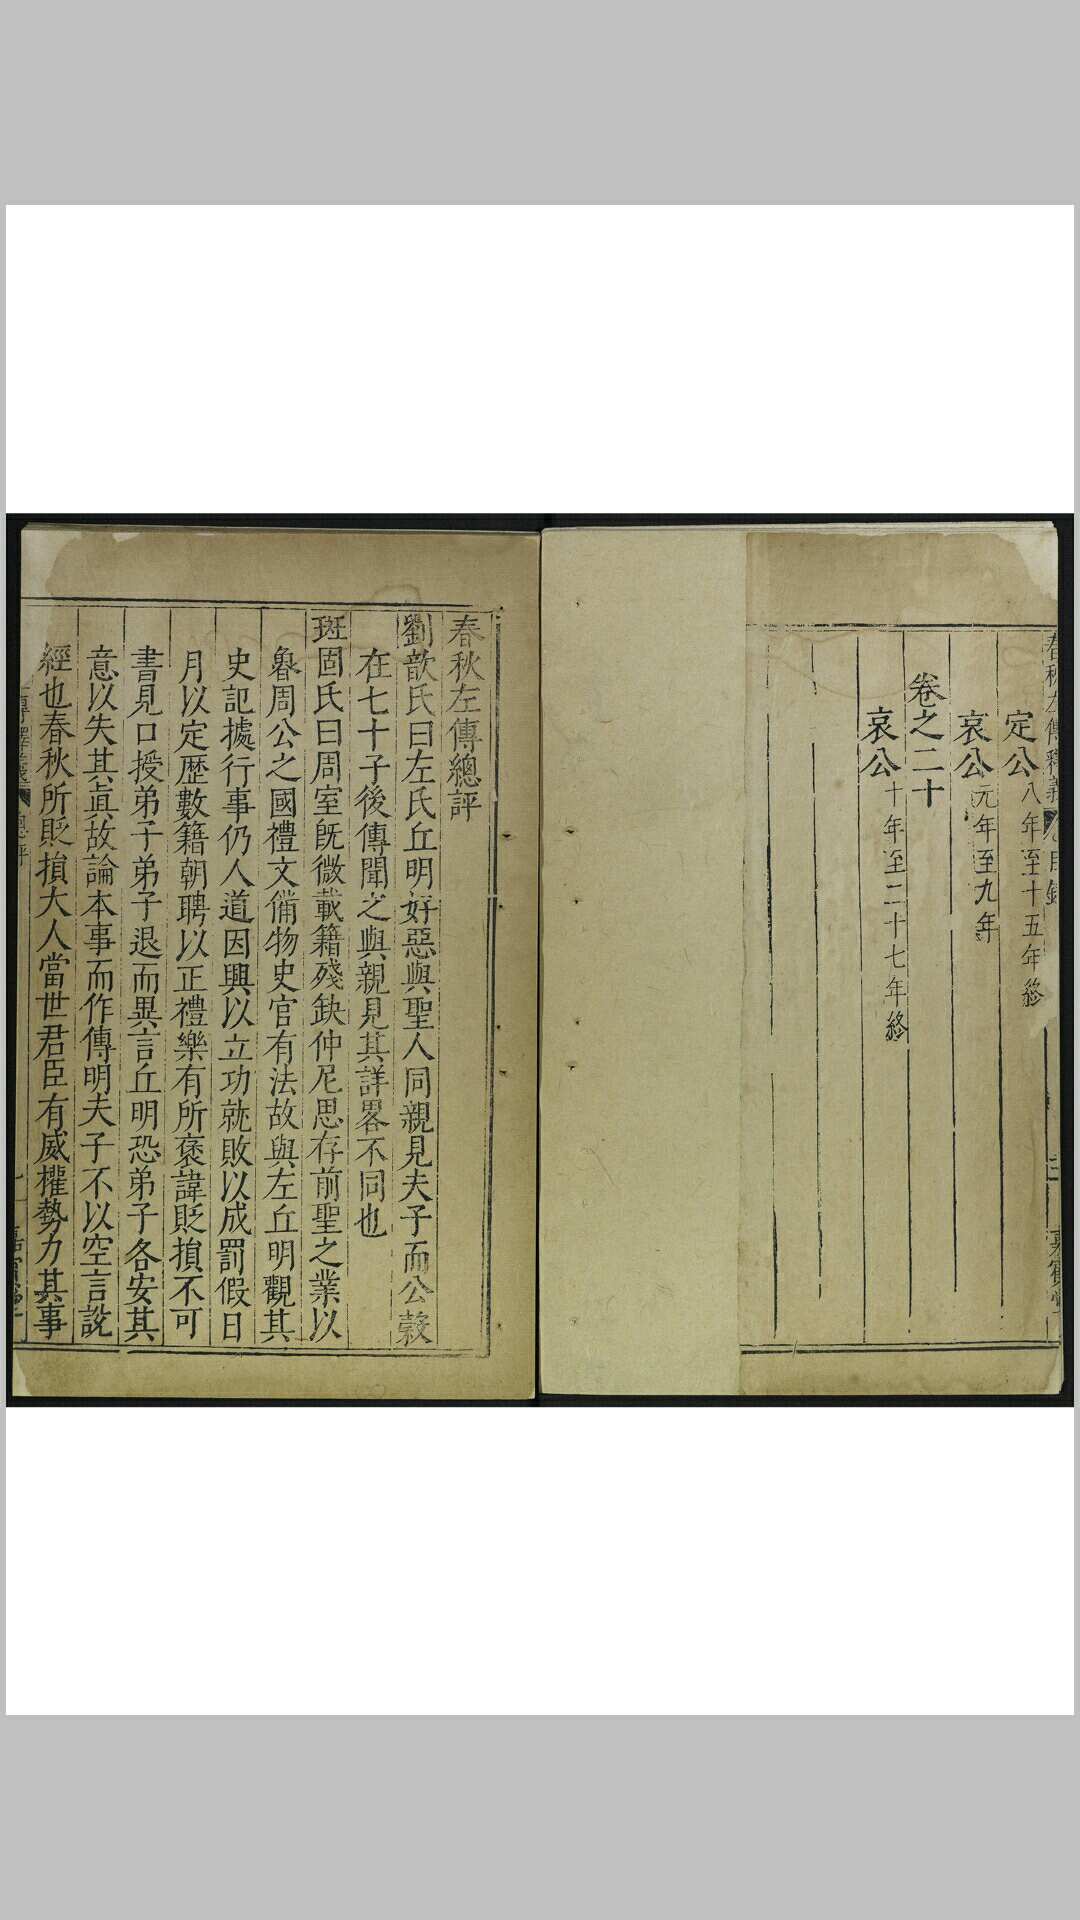 春秋左傳釋義
目錄
嘉賓堂
定公八年至十五年終
哀公元年至九年
卷之二十
哀公十年至二十七年終
春秋左傳總評
劉歆氏曰左氏丘明好惡與聖人同親見夫子而公穀
在七十子後傳聞之與親見其詳畧不同也
班固氏曰周室旣微載籍殘缺仲尼思存前聖之業以
魯周公之國禮文備物史官有法故與左丘明觀其
史記據行事仍人道因興以立功就敗以成罰假日
月以定歷數籍朝聘以正禮樂有所褒諱貶損不可
書見口授弟子弟子退而異言丘明恐弟子各安其
意以失其眞故論本事而作傳明夫子不以空言說
經也春秋所貶損大人當世君臣有威權勢力其事